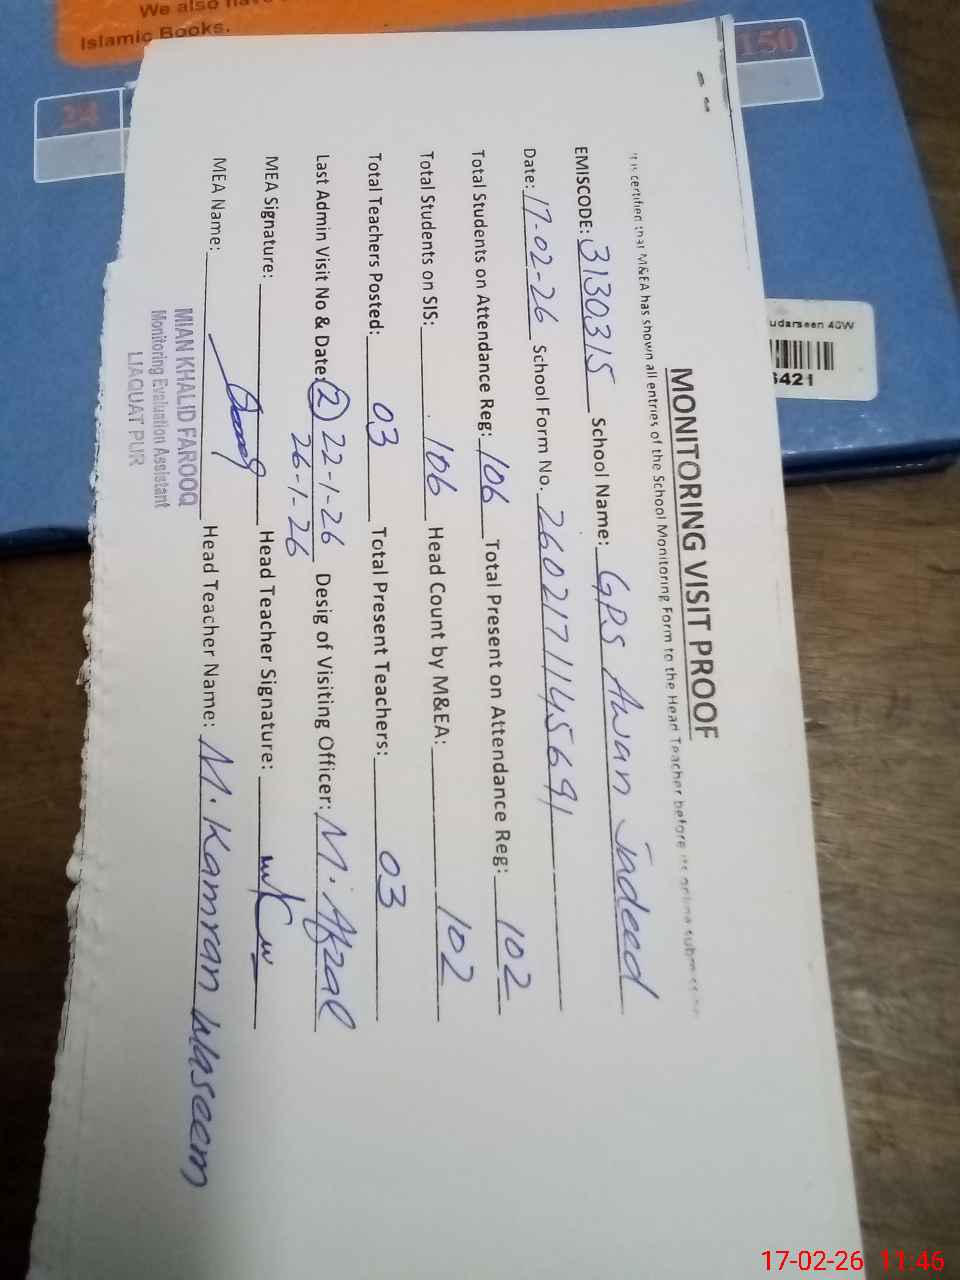 We also have
Islamic Books.
24
150
udarseen 40W
6421
MONITORING VISIT PROOF
It is certified that M&EA has shown all entries of the School Monitoring Form to the Head Teacher before its online submission
EMISCODE: 3130315 School Name: GPS Awan Jadeed
Date: 17-02-26 School Form No. 260217114569 1
Total Students on Attendance Reg: 106 Total Present on Attendance Reg: 102
Total Students on SIS: 106 Head Count by M&EA: 102
Total Teachers Posted: 03 Total Present Teachers: 03
Last Admin Visit No & Date: (2) 22-1-26 Desig of Visiting Officer: M. Afzal
26-1-26
MEA Signature: Head Teacher Signature:
MEA Name: Head Teacher Name: M. Kamran Waseem
MIAN KHALID FAROOQ
Monitoring Evaluation Assistant
LIAQUAT PUR
17-02-26 11:46